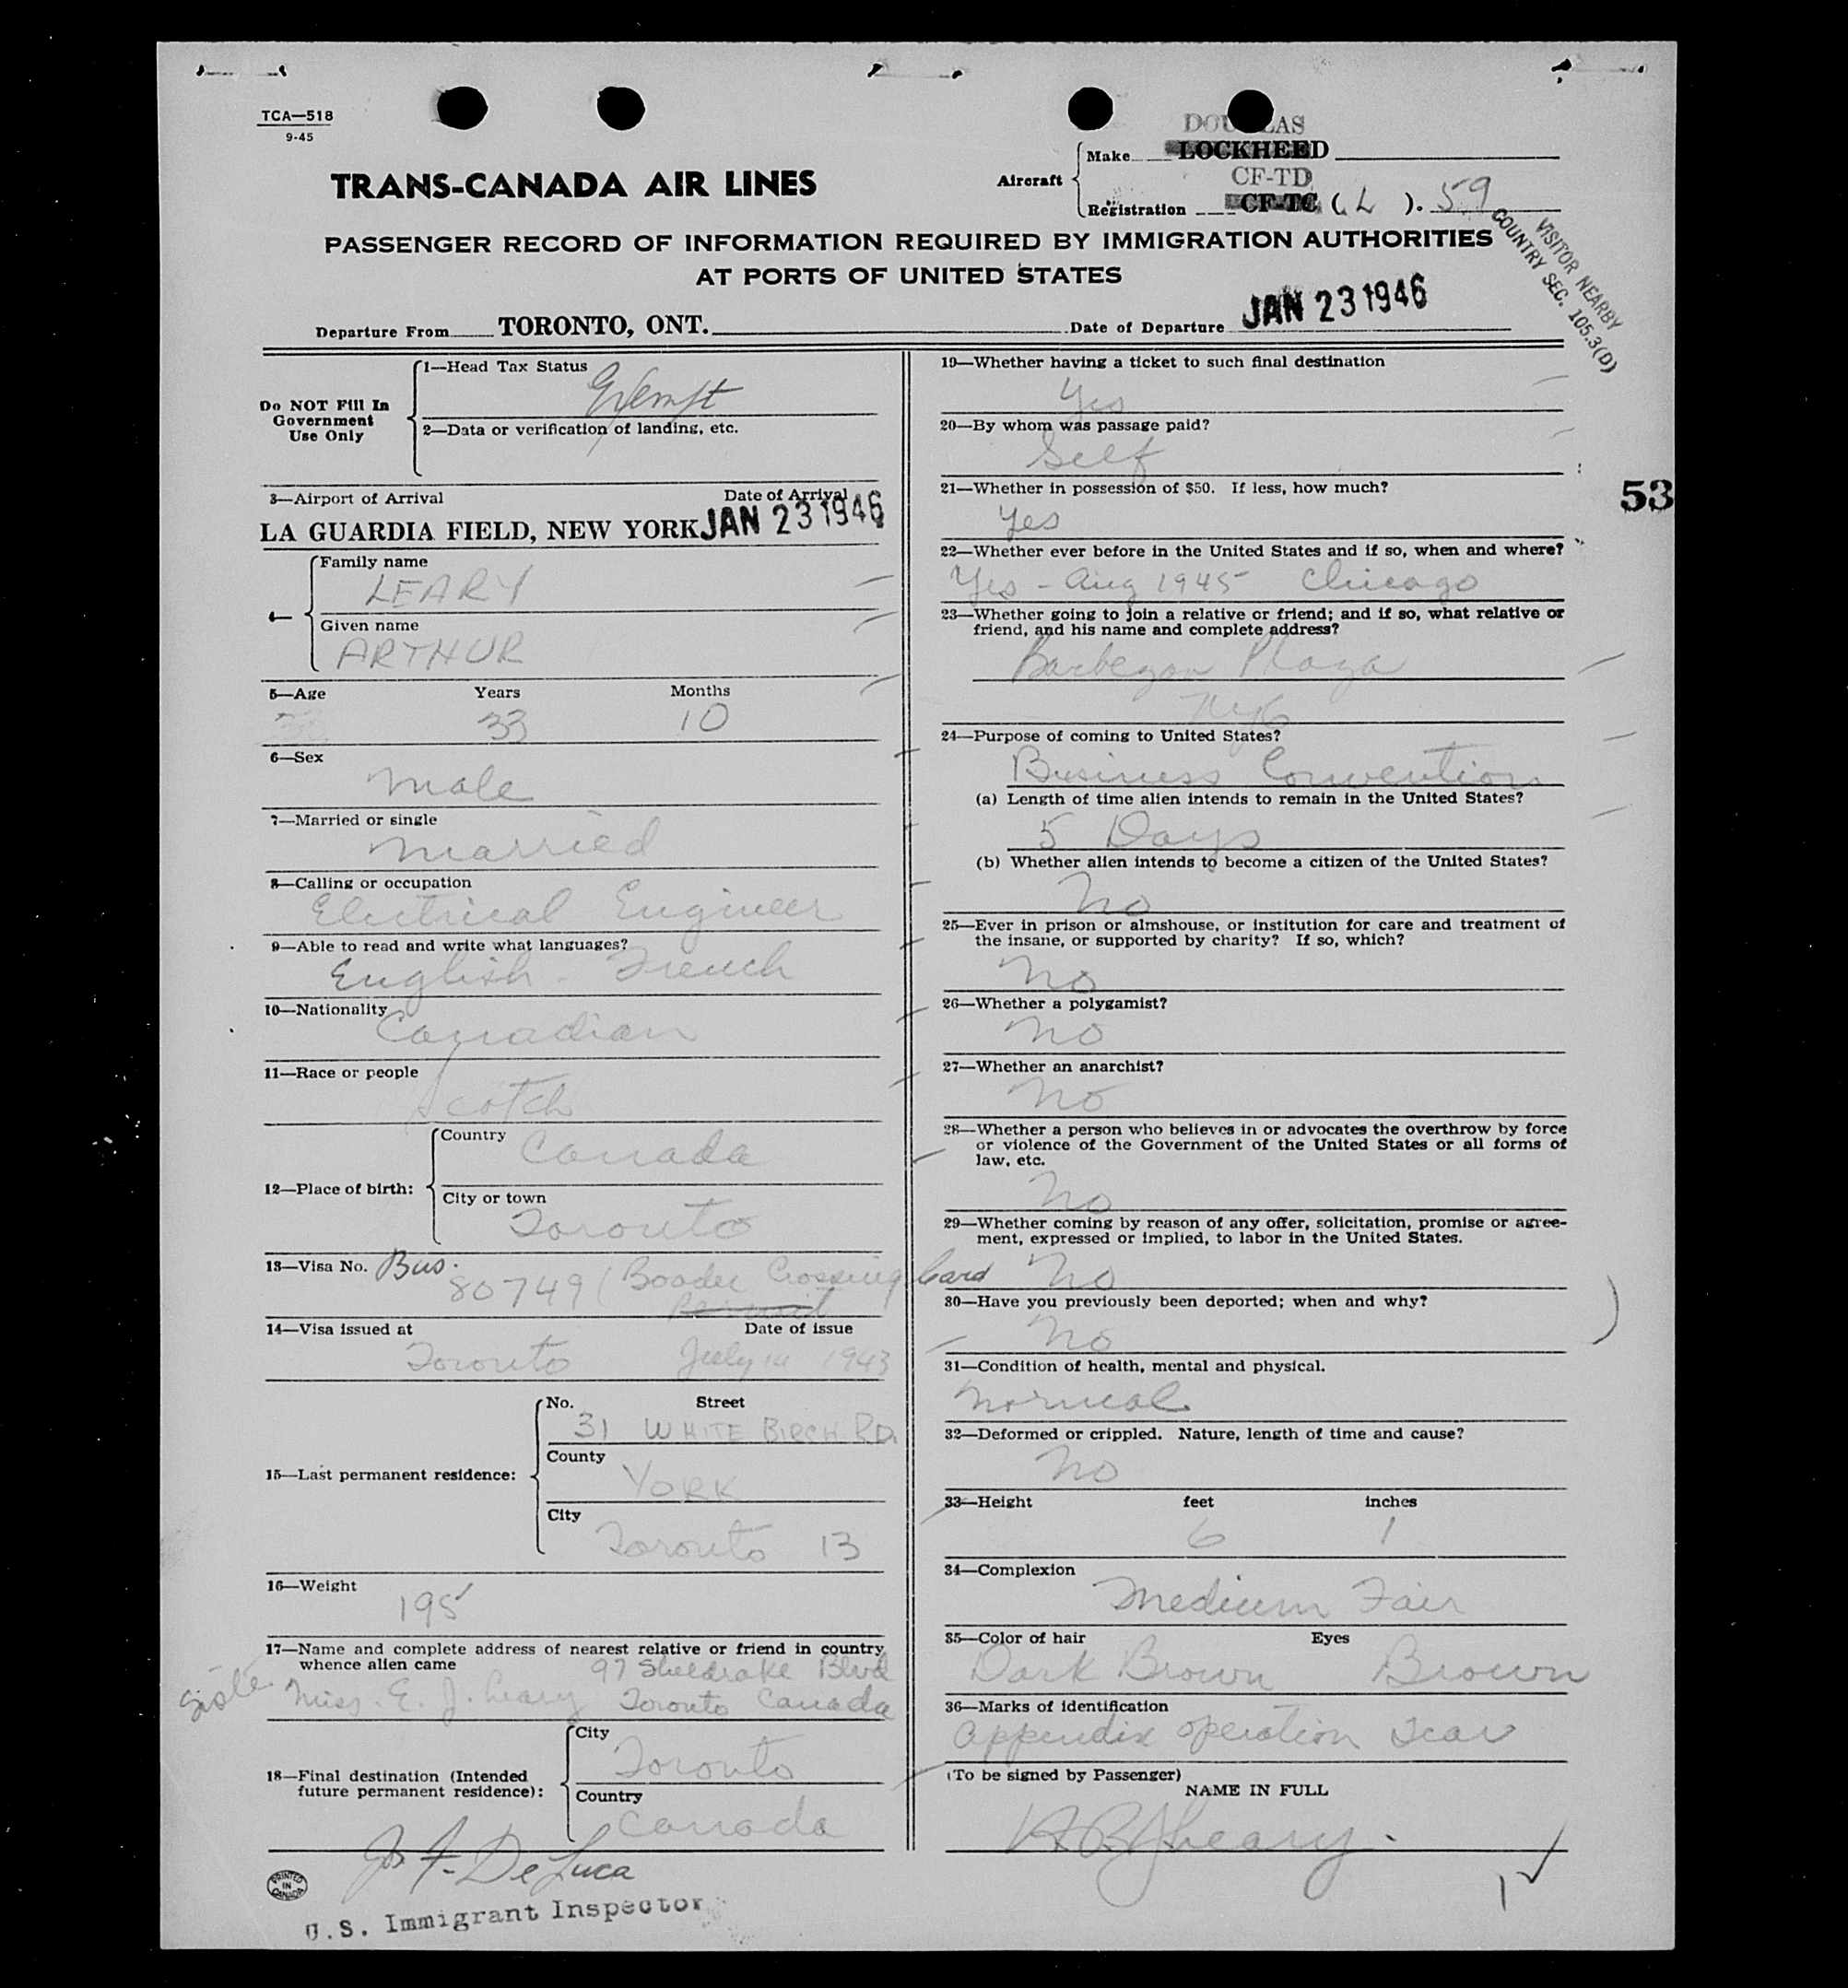 TCA—518
9-45
DOUGLAS
Make LOCKHEED
Aircraft
CF-TD
Registration CF-TC (L). 59
TRANS-CANADA AIR LINES
VISITOR NEARBY
COUNTRY SEC. 105.3(D)
PASSENGER RECORD OF INFORMATION REQUIRED BY IMMIGRATION AUTHORITIES
AT PORTS OF UNITED STATES
Departure From TORONTO, ONT. Date of Departure JAN 23 1946
Do NOT Fill In
Government
Use Only
1—Head Tax Status
Exempt
2—Data or verification of landing, etc.
3—Airport of Arrival Date of Arrival
LA GUARDIA FIELD, NEW YORK JAN 23 1946
4—
Family name
LEARY
Given name
ARTHUR
5—Age Years Months
33 10
6—Sex
Male
7—Married or single
Married
8—Calling or occupation
Electrical Engineer
9—Able to read and write what languages?
English - French
10—Nationality
Canadian
11—Race or people
Scotch
12—Place of birth:
Country
Canada
City or town
Toronto
13—Visa No. Bus.
80749 (Boader Crossing Card
Permit
14—Visa issued at Date of issue
Toronto July 14 1943
15—Last permanent residence:
No. Street
31 WHITE BIRCH RD.
County
YORK
City
Toronto 13
16—Weight
195
17—Name and complete address of nearest relative or friend in country
whence alien came 97 Sheldrake Blvd
Sister Miss. E. J. Leary Toronto Canada
18—Final destination (Intended
future permanent residence):
City
Toronto
Country
Canada
De Luca
PRINTED
IN
CANADA
U.S. Immigrant Inspector
19—Whether having a ticket to such final destination
Yes
20—By whom was passage paid?
Self
21—Whether in possession of $50. If less, how much?
Yes
53
22—Whether ever before in the United States and if so, when and where?
Yes - Aug 1945 Chicago
23—Whether going to join a relative or friend; and if so, what relative or
friend, and his name and complete address?
Barbezon Plaza
NYC
24—Purpose of coming to United States?
Business Convention
(a) Length of time alien intends to remain in the United States?
5 Days
(b) Whether alien intends to become a citizen of the United States?
No
25—Ever in prison or almshouse, or institution for care and treatment of
the insane, or supported by charity? If so, which?
No
26—Whether a polygamist?
No
27—Whether an anarchist?
No
28—Whether a person who believes in or advocates the overthrow by force
or violence of the Government of the United States or all forms of
law, etc.
No
29—Whether coming by reason of any offer, solicitation, promise or agree-
ment, expressed or implied, to labor in the United States.
No
30—Have you previously been deported; when and why?
No
31—Condition of health, mental and physical.
Normal
32—Deformed or crippled. Nature, length of time and cause?
No
33—Height feet inches
6 1
34—Complexion
Medium Fair
35—Color of hair Eyes
Dark Brown Brown
36—Marks of identification
Appendix operation scar
(To be signed by Passenger)
NAME IN FULL
Leary.